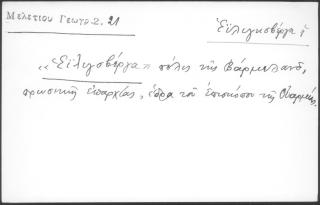 Μελετίου Γεωγρ 2. 21
Εἰλιγισβέργα ἡ
«Εἰλιγισβέργα» πόλις τῆς Βάρμελανδ,
πρωσικῆς ἐπαρχίας, ἕδρα τοῦ ἐπισκόπου τῆς Οὐαρμίας.